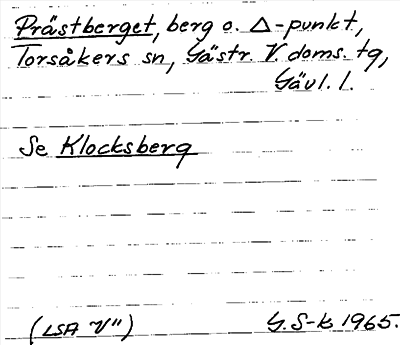 Prästberget, berg o. △-punkt,
Torsåkers sn, Gästr. V. doms. tg,
Gävl. l.
Se Klocksberg
(LSA V")
G. S-k 1965.